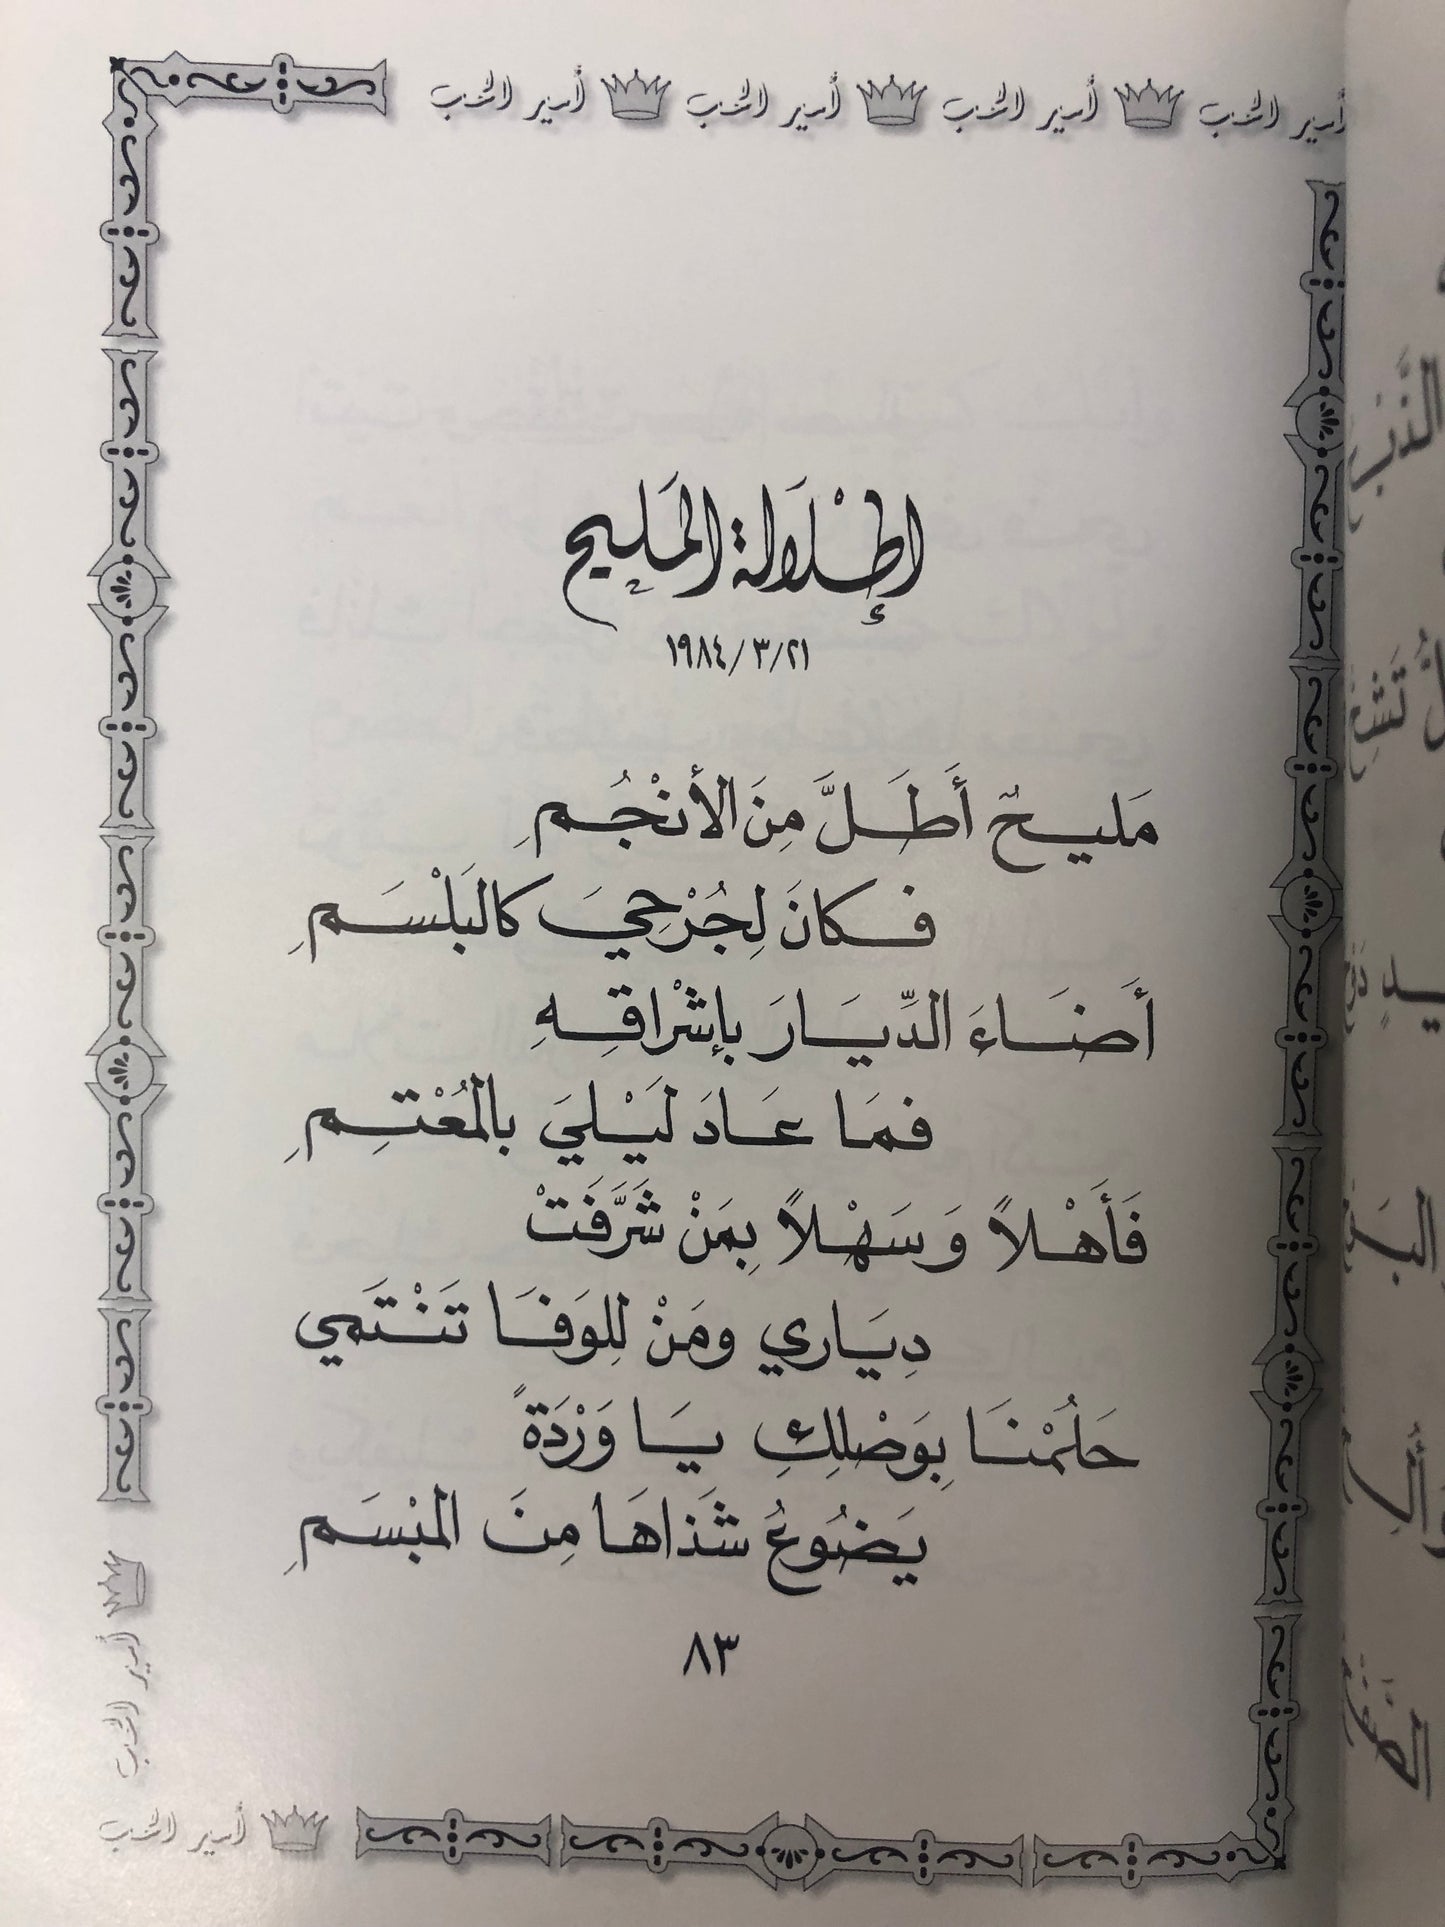 أمير الحب أمير الحب أمير الحب أمير الحب
إطْلَالَة المَليح
٢١/٣/١٩٨٤
مَليحٌ أَطَلَّ مِنَ الأنْجُمِ
فكانَ لِجُرْحِيَ كالبَلْسَمِ
أَضَاءَ الدِّيَارَ بإشْراقِهِ
فمَا عَادَ لَيْلِيَ بالمُعْتِمِ
فَأَهْلاً وَسَهْلاً بِمَنْ شَرَّفَتْ
دِيَاري ومَنْ لِلوَفَا تَنْتَمي
حَلُمْنَا بِوَصْلِكِ يَا وَرْدَةً
يَضُوعُ شَذَاهَا مِنَ المَبْسَمِ
٨٣
أمير الحب
أمير الحب